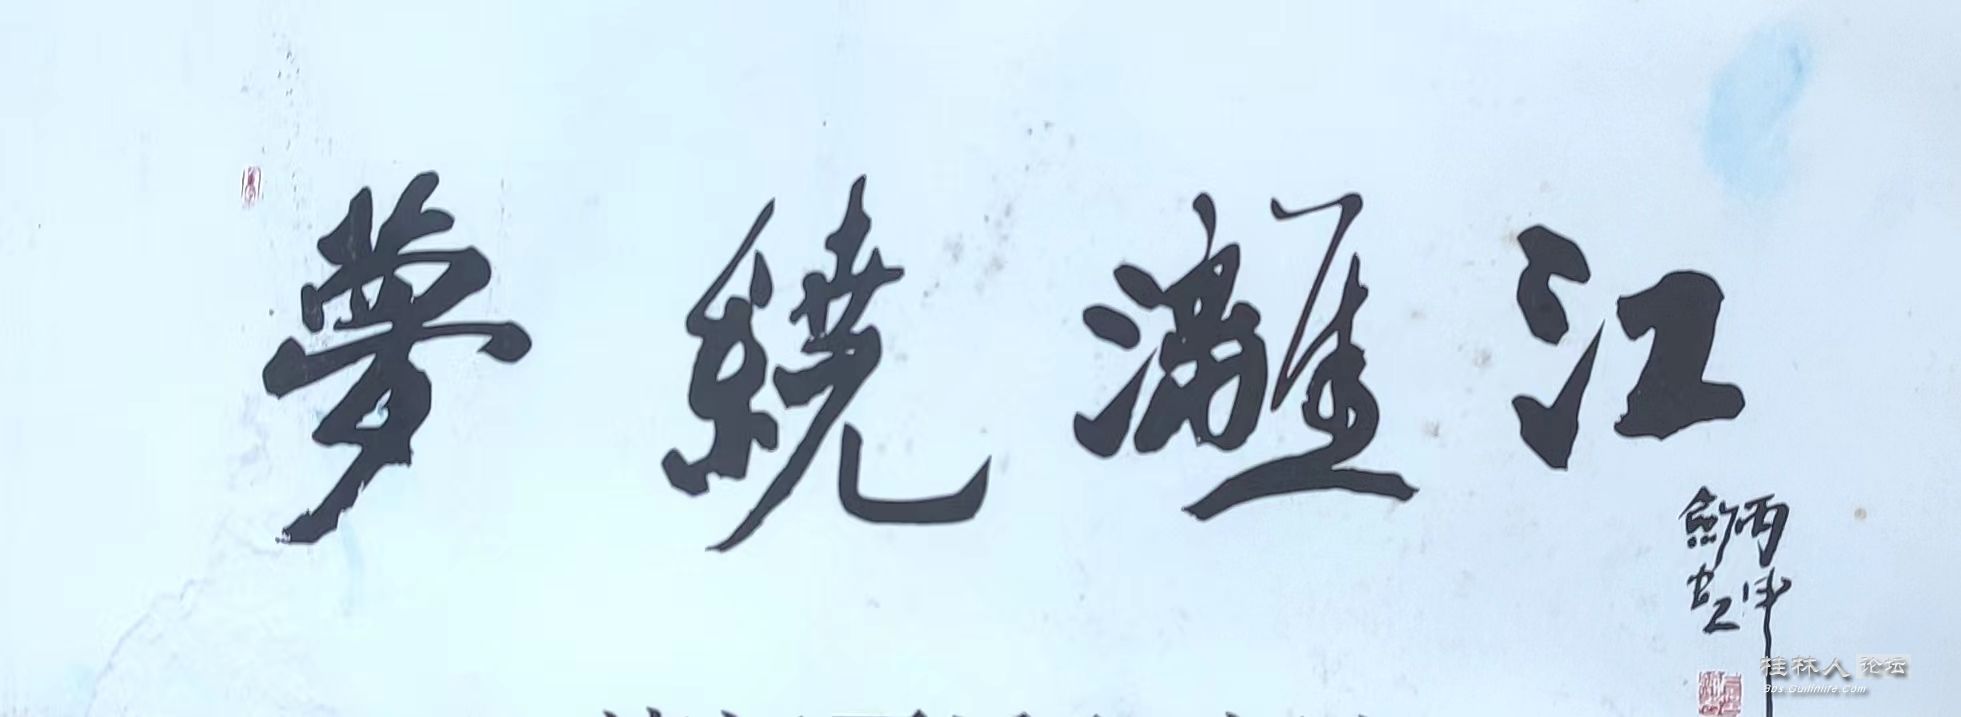 夢繞灕江
丙
桂林人论坛
Bbs.Guilinlife.Com